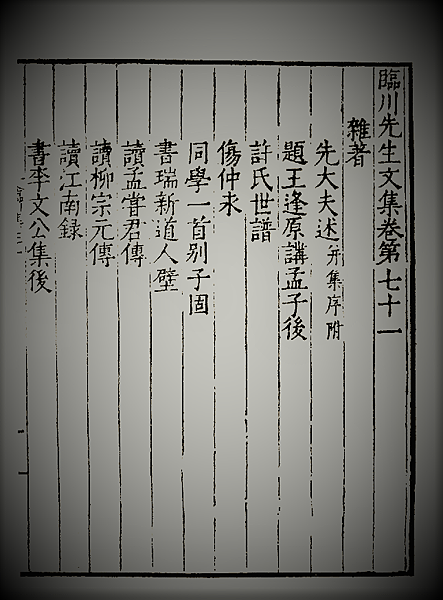 臨川先生文集卷第七十一
雜著
先大夫述并集序附
題王逢原講孟子後
許氏世譜
傷仲永
同學一首別子固
書瑞新道人壁
讀孟甞君傳
讀柳宗元傳
讀江南録
書李文公集後